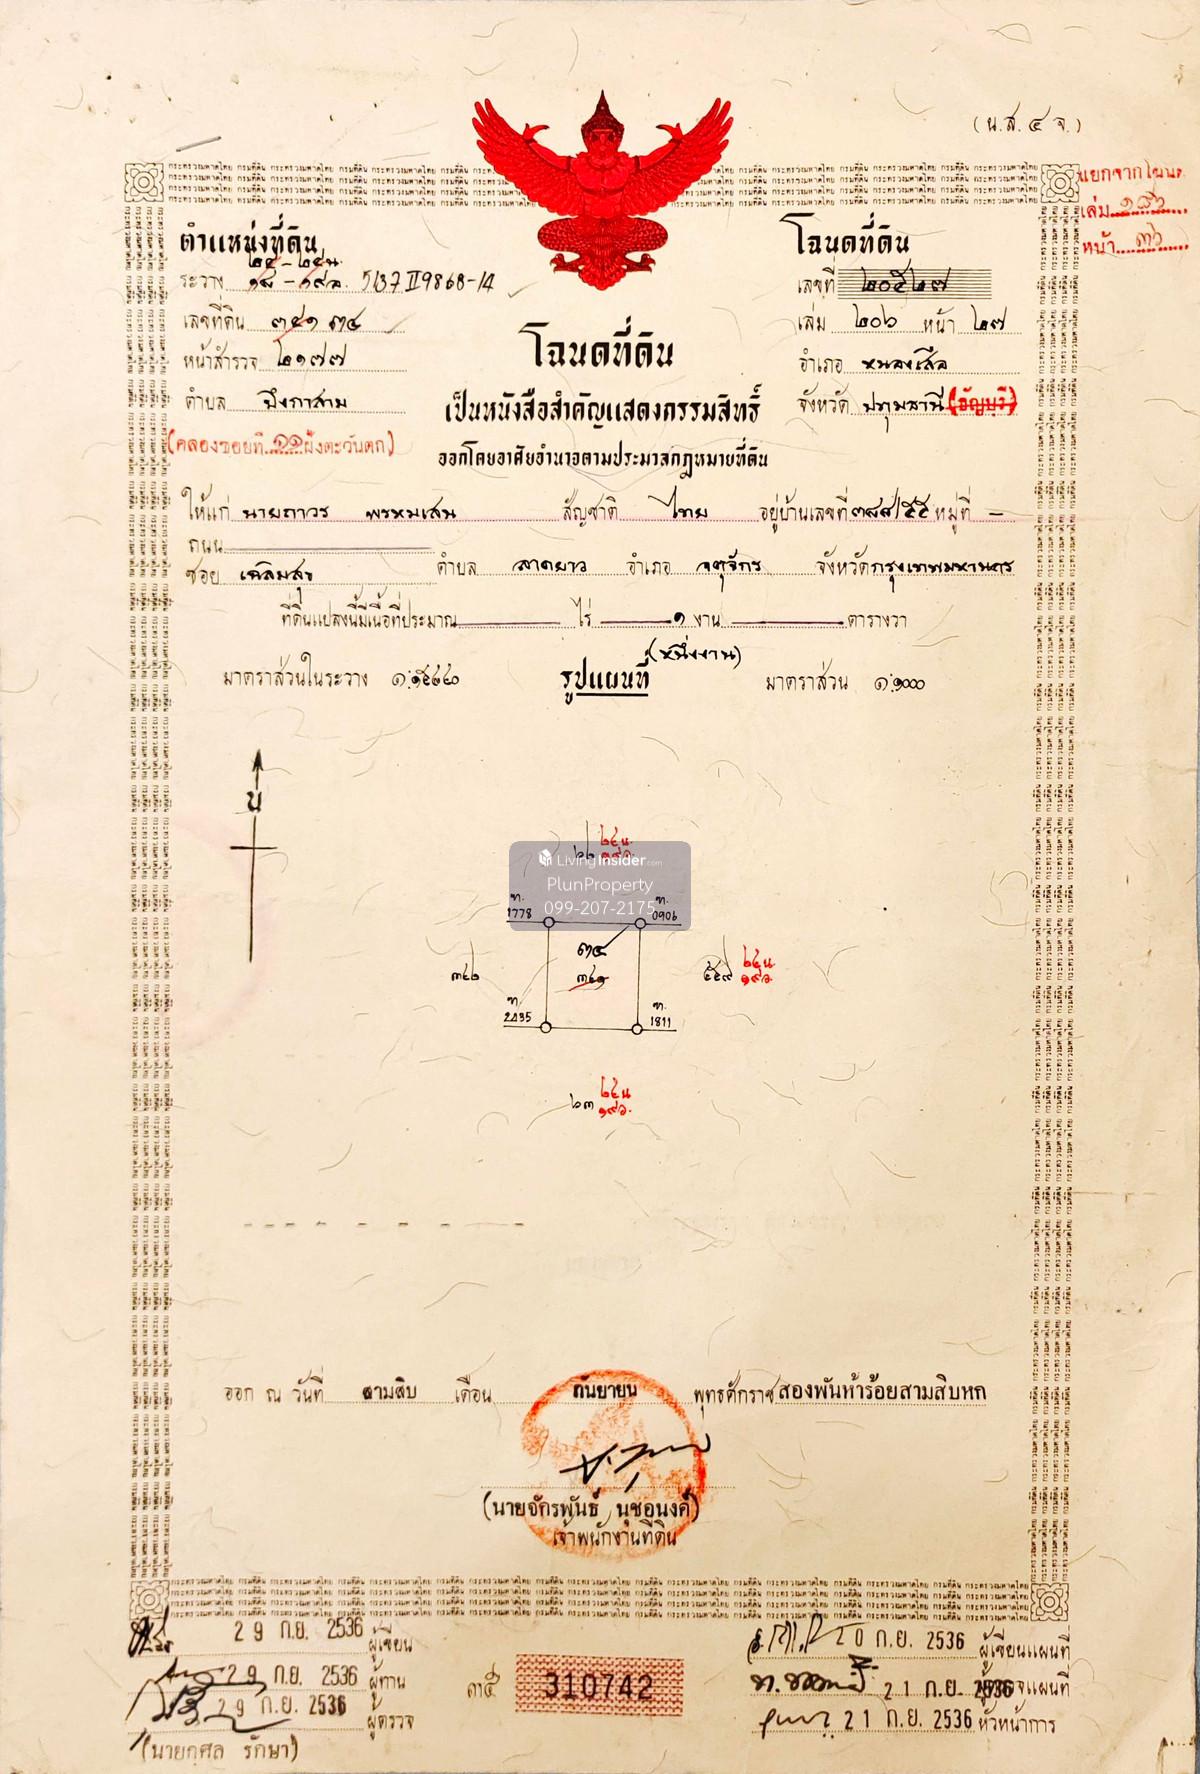 (น.ส.๔ จ.)
แยกจากโฉนด
เล่ม ๑๘๖
หน้า ๓๖
ตำแหน่งที่ดิน
๒๔-๒๔น.
ระวาง ๑๘-๑๙อ. 5137 II 9868-14
เลขที่ดิน ๓๔๑ ๓๔
หน้าสำรวจ ๒๑๗๗
ตำบล บึงกาสาม
(คลองซอยที่ ๑๑ ฝั่งตะวันตก)
โฉนดที่ดิน
เลขที่ ๒๐๕๒๗
เล่ม ๒๐๖ หน้า ๒๗
อำเภอ หนองเสือ
จังหวัด ปทุมธานี (ธัญบุรี)
โฉนดที่ดิน
เป็นหนังสือสำคัญแสดงกรรมสิทธิ์
ออกโดยอาศัยอำนาจตามประมวลกฎหมายที่ดิน
ให้แก่ นายถาวร พรหมเสน สัญชาติ ไทย อยู่บ้านเลขที่ ๓๘๘/๕๕ หมู่ที่ -
ถนน
ซอย เฉลิมสุข ตำบล ลาดยาว อำเภอ จตุจักร จังหวัด กรุงเทพมหานคร
ที่ดินแปลงนี้มีเนื้อที่ประมาณ ไร่ ๑ งาน ตารางวา
(หนึ่งงาน)
มาตราส่วนในระวาง รูปแผนที่ มาตราส่วน ๑:๑๐๐๐
น
๒๔น.
๑๙อ.
LivingInsider.com
PlunProperty
099-207-2175
ท. 1778
ท. 0906
๓๔
๓๔๒ ๓๔๑ ๕๔๙ ๒๔น. ๑๙อ.
ท. 2435
ท. 1811
๖๓ ๒๔น ๑๙อ.
ออก ณ วันที่ สามสิบ เดือน กันยายน พุทธศักราช สองพันห้าร้อยสามสิบหก
(นายจักรพันธ์ นุชอนงค์)
เจ้าพนักงานที่ดิน
29 ก.ย. 2536 ผู้เขียน
29 ก.ย. 2536 ผู้ทาน
29 ก.ย. 2536 ผู้ตรวจ
(นายกุศล รักษา)
๓๕ 310742
20 ก.ย. 2536 ผู้เขียนแผนที่
21 ก.ย. 2536 ผู้ตรวจแผนที่
21 ก.ย. 2536 หัวหน้าการ